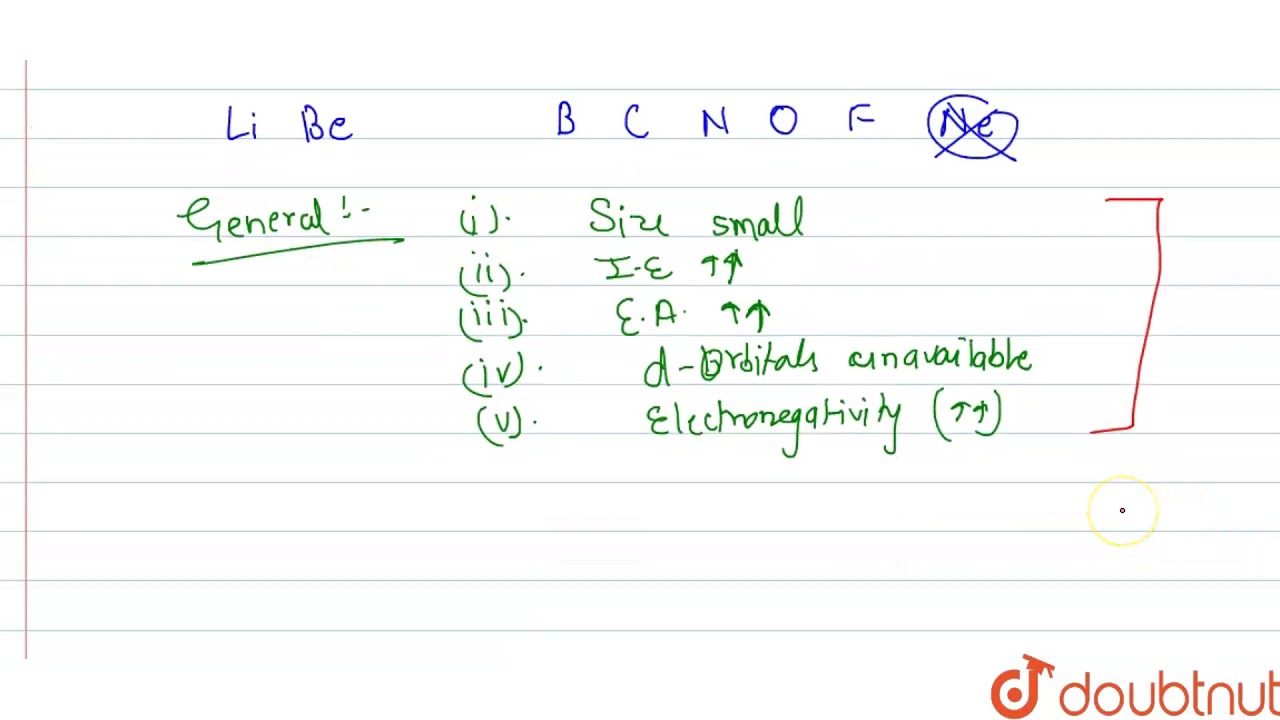 Li Be B C N O F Ne
General :- (i). Size small
(ii). I.E ↑↑
(iii). E.A. ↑↑
(iv). d-Orbitals unavailable
(v). Electronegativity (↑↑)
doubtnut